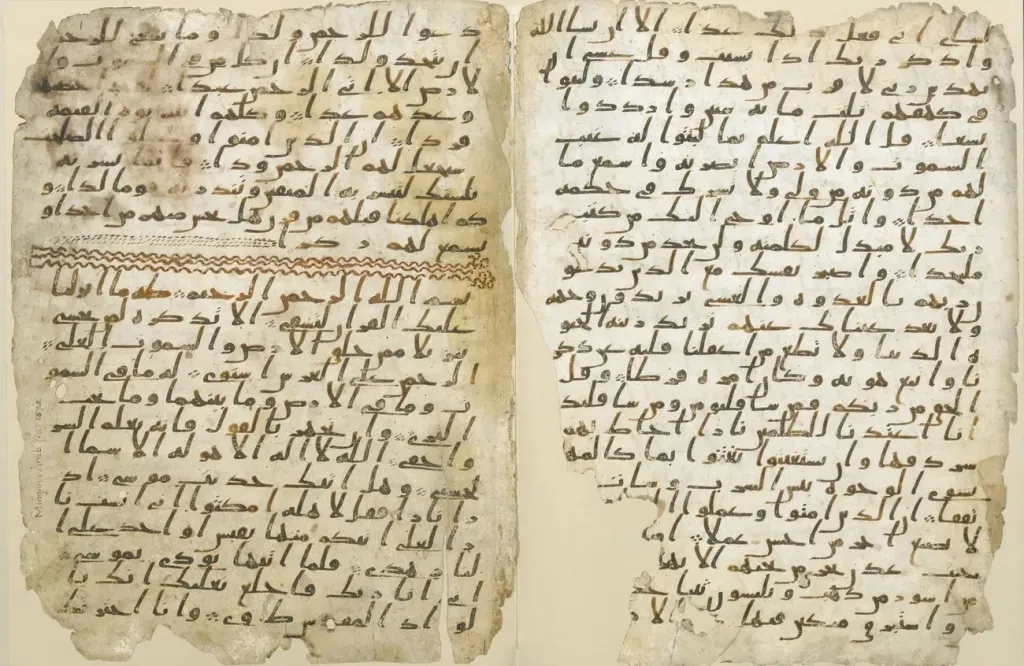 لشاي اني فعل ذلك غدا الا ان يشا الله
واذكر ربك اذا نسيت وقل عسى ان
يهدين ربي لاقرب من هذا رشدا ولبثوا
في كهفهم ثلث مايه سنين وازدادوا
تسعا قل الله اعلم بما لبثوا له غيب
السموت والارض ابصر به واسمع ما
لهم من دونه من ولي ولا يشرك في حكمه
احدا واتل ما اوحي اليك من كتب
ربك لا مبدل لكلمته ولن تجد من دونه
ملتحدا واصبر نفسك مع الذين يدعو
ن ربهم بالغدوه والعشي يريدون وجهه
ولا تعد عيناك عنهم تريد زينه الحيو
ه الدنيا ولا تطع من اغفلنا قلبه عن ذكر
نا واتبع هويه وكان امره فرطا وقل
الحق من ربكم فمن شا فليومن ومن شا فليكفر
انا اعتدنا للظلمين نارا احاط بهم
سردقها وان يستغيثوا يغثوا بما كالمهل
يشوي الوجوه بيس الشرب وسات
تفقا ان الذين امنوا وعملوا ا
لا نضيع اجر من احسن عملا اول
جنت عدن تجري من تحتهم الانهر
من اسور من ذهب ويلبسون ثيابا خ
واستبرق متكين فيها الار
دعوا للرحمن ولدا وما ينبغي للرحمن
ان يتخذ ولدا ان كل من في السموت وا
لارض الا اتي الرحمن عبدا لقد احصيهم
وعدهم عدا وكلهم اتيه يوم القيمه
فردا ان الذين امنوا وعملوا الصلحت
سيجعل لهم الرحمن ودا فانما يسرنه
بلسنك لتبشر به المتقين وتنذر به قوما لدا و
كم اهلكنا قبلهم من قرن هل تحس منهم من احد او
تسمع لهم ركزا
بسم الله الرحمن الرحيم طه ما انزلنا
عليك القران لتشقي الا تذكره لمن يخشي
تنزيلا ممن خلق الارض والسموت العلي
الرحمن علي العرش استوي له ما في السمو
ت وما في الارض وما بينهما وما تحت
الثري وان تجهر بالقول فانه يعلم السر
واخفي الله لا اله الا هو له الاسما ا
لحسني وهل اتيك حديث موسي اذ
را نارا فقل لاهله امكثوا اني انست نا
را لعلي اتيكم منها بقبس او اجد علي ا
لنار هدي فلما اتيها نودي يموسي
اني انا ربك فاخلع نعليك انك با
لواد المقدس طوي وانا اخترتك